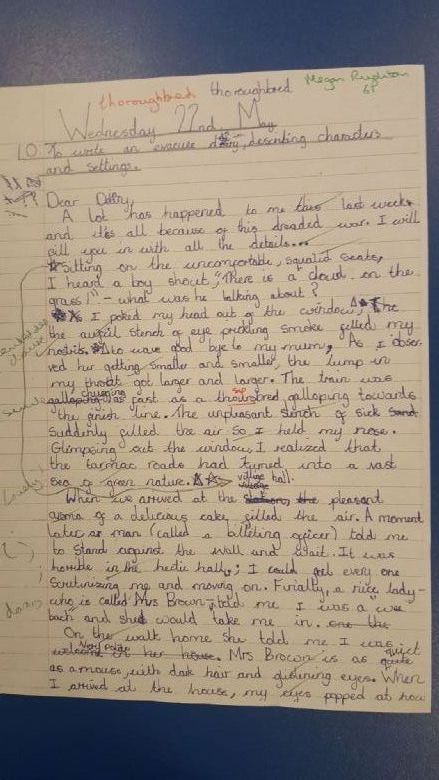 thoroughbred thoroughbred Megan
6P
Wednesday 22nd May
LO: To write an evacuee diary, describing characters
and settings.
Dear Diary,
A lot has happened to me this last weeks
and it's all because of this dreaded war. I will
fill you in with all the details...
Sitting on the uncomfortable, squalid seats,
I heard a boy shout, "There is a cloud on the
grass!" - what was he talking about?
I poked my head out of the window, The
the awful stench of eye prickling smoke filled my
nostrils. to wave good bye to my mum, As I obser
ved her getting smaller and smaller, the lump in
my throat got larger and larger. The train was
chugging
galloping as fast as a galloping towards
the finish line. The unpleasant stench of sick
suddenly filled the air so I held my nose.
Glimpsing out the window, I realized that
the tarmac roads had turned into a vast
sea of green nature. village hall.
When we arrived at the the pleasant
aroma of a delicious cake, filled the air. A moment
later a man (called a billeting officer) told me
to stand against the wall and wait. It was
horrible in the hectic hall; I could feel every one
scrutinizing me and moving on. Finially, a nice lady-
who is called Mrs Brown- told me I was a we
and she would take me in.
On the walk home she told me I was
Very polite
welcome in her house. Mrs Brown is as quiet
as a mouse, with dark hair and glistening eyes. When
I arrived at the house, my eyes popped at how